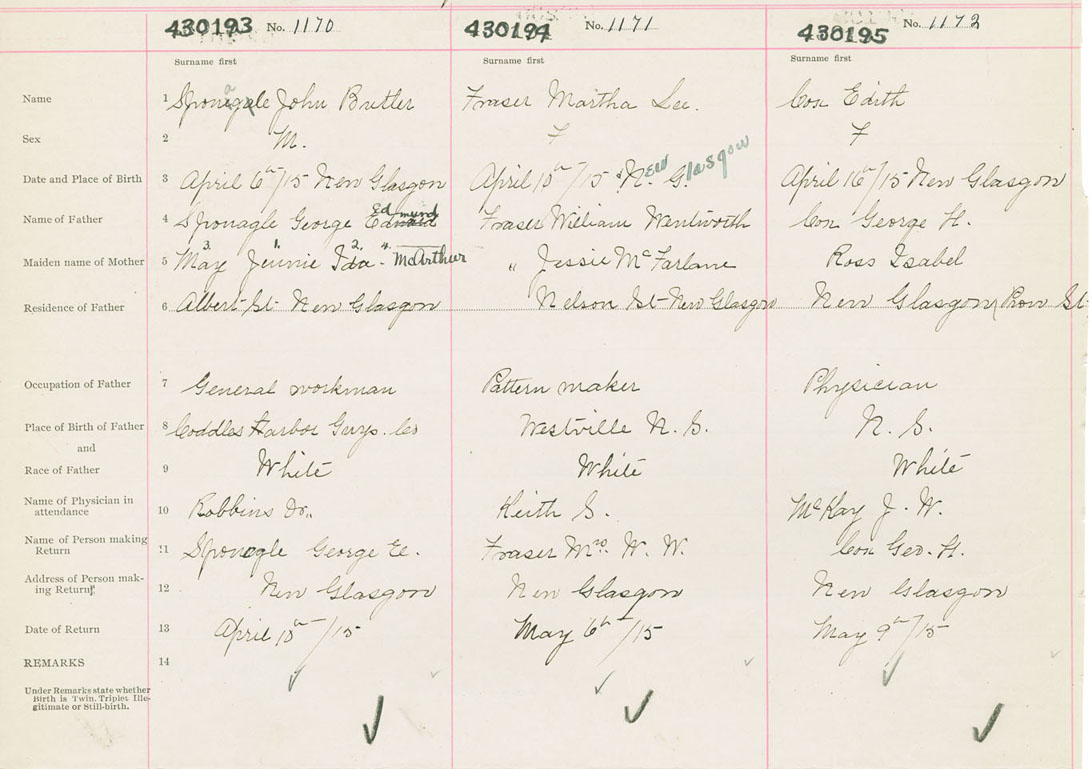 430193 No. 1170 430194 No. 1171 430195 No. 1172
Surname first Surname first Surname first
Name 1 Sponagle John Butler Fraser Martha Lee. Cox Edith
Sex 2 M. F F
Date and Place of Birth 3 April 6th/15 New Glasgow April 10th/15 New Glasgow April 16th/15 New Glasgow
Name of Father 4 Sponagle George Edmund Fraser William Wentworth Cox George H.
Maiden name of Mother 5 May 3 Jennie 1 Ida 2. - McArthur 4 " Jessie McFarlane Ross Isabel
Residence of Father 6 Albert St. New Glasgow Nelson St New Glasgow New Glasgow, Prov St.
Occupation of Father 7 General workman Pattern maker Physician
Place of Birth of Father 8 Coddles Harbor Guys. Co Westville N. S. N. S.
and
Race of Father 9 White White White
Name of Physician in
attendance 10 Robbins Dr. Keith S. McKay J. W.
Name of Person making
Return 11 Sponagle George E. Fraser Mrs. W. W. Cox Geo. H.
Address of Person mak-
ing Return 12 New Glasgow New Glasgow New Glasgow
Date of Return 13 April 15th/15 May 6th/15 May 9th/15
REMARKS 14
Under Remarks state whether
Birth is Twin. Triplet Ille-
gitimate or Still-birth.